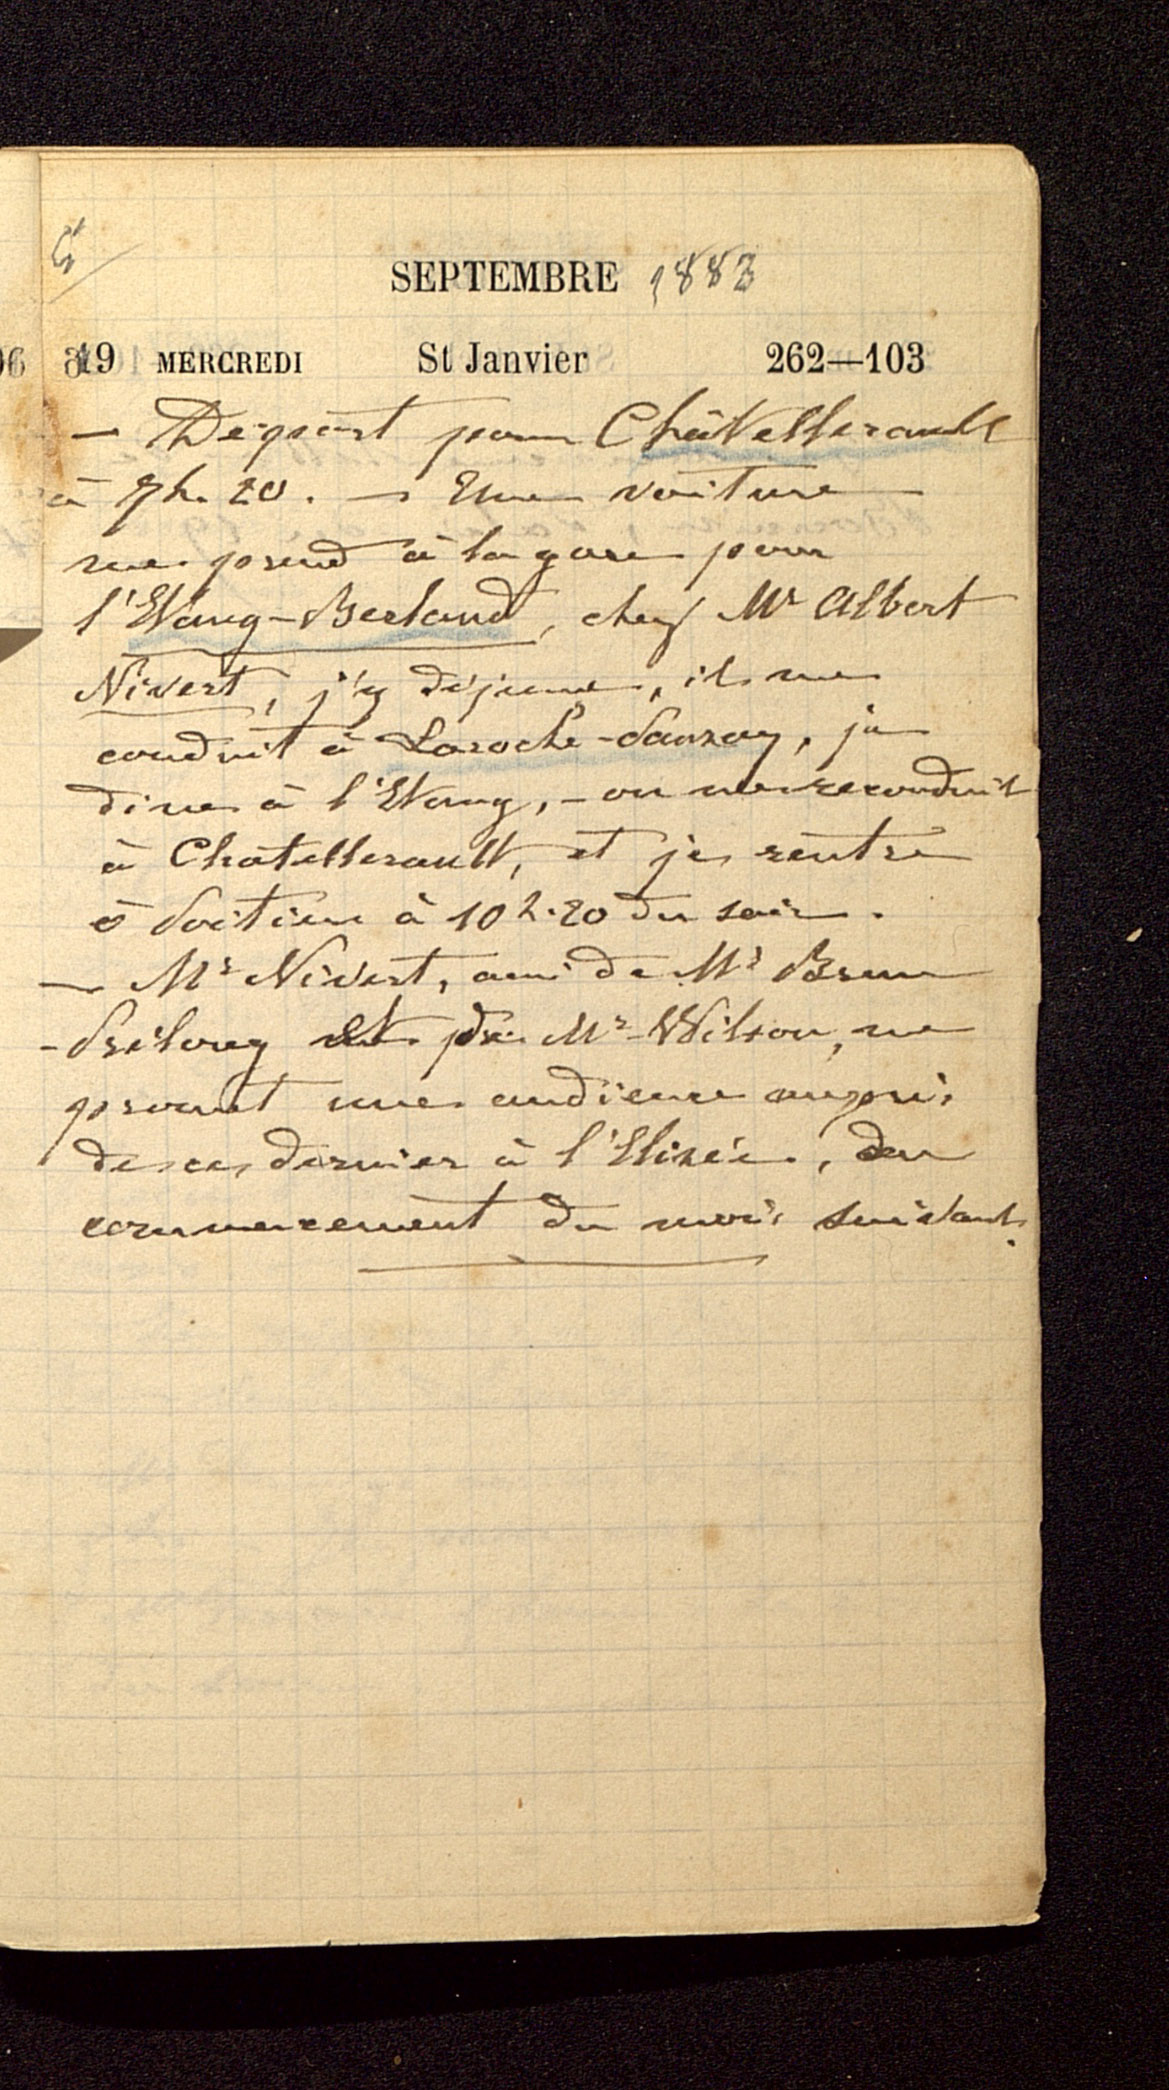 SEPTEMBRE 1883
19 MERCREDI St Janvier 262—103
— Départ pour Châtellerault
à 7h. 20. — Une voiture
me prend à la gare pour
l'Etang-Berland, chez Mr Albert
Nivert, j'y déjeune, il me
conduit à Laroche-, je
dine à l'Etang, - on me reconduit
à Chatellerault, et je rentre
à Poitiers à 10h.20 du soir.
— Mr Nivert, ami de Mr Brun
et de Mr Wilson, me
promet une audience auprès
de ce dernier à l'Elisée, au
commencement du mois suivant.